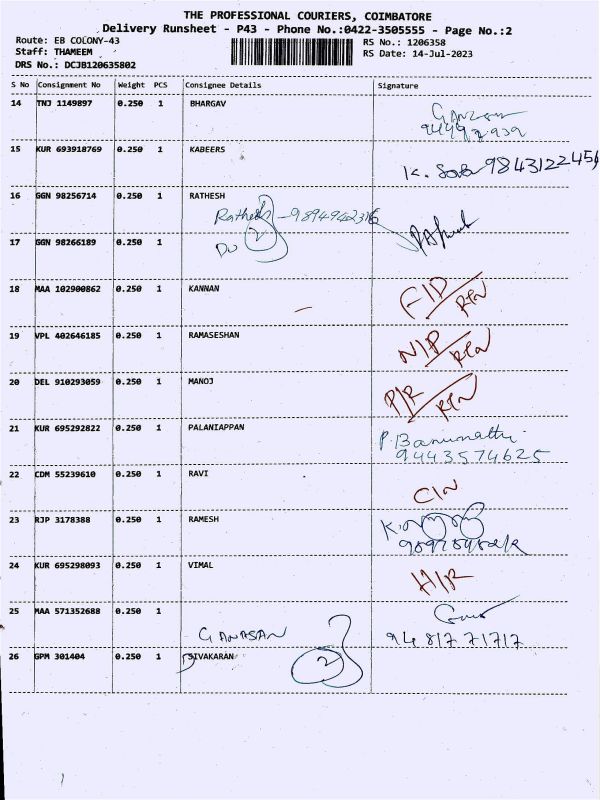 THE PROFESSIONAL COURIERS, COIMBATORE
Delivery Runsheet - P43 - Phone No.:0422-3505555 - Page No.:2
Route: EB COLONY-43
Staff: THAMEEM
DRS No.: DCJB120635802
RS No.: 1206358
RS Date: 14-Jul-2023
S No Consignment No Weight PCS Consignee Details Signature
14 TNJ 1149897 0.250 1 BHARGAV
15 KUR 693918769 0.250 1 KABEERS
K. 9843122456
16 GGN 98256714 0.250 1 RATHESH
Rathesh - 9894942316
17 GGN 98266189 0.250 1
Do 2
18 MAA 102900862 0.250 1 KANNAN
RTN
19 VPL 402646185 0.250 1 RAMASESHAN
N/P RTN
20 DEL 910293059 0.250 1 MANOJ
P/R RTN
21 KUR 695292822 0.250 1 PALANIAPPAN
P. Banumathi
9443574625
22 CDM 55239610 0.250 1 RAVI
C/N
23 RJP 3178388 0.250 1 RAMESH
24 KUR 695298093 0.250 1 VIMAL
H/R
25 MAA 571352688 0.250 1
GANASAN
9481771717
26 GPM 301404 0.250 1 SIVAKARAN
2